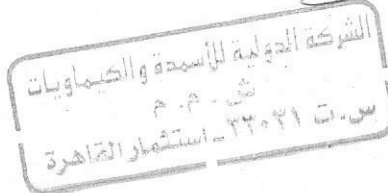 الشركة الدولية للأسمدة والكيماويات
ش . م . م
س . ت ٣٣٠٣١ - استثمار القاهرة